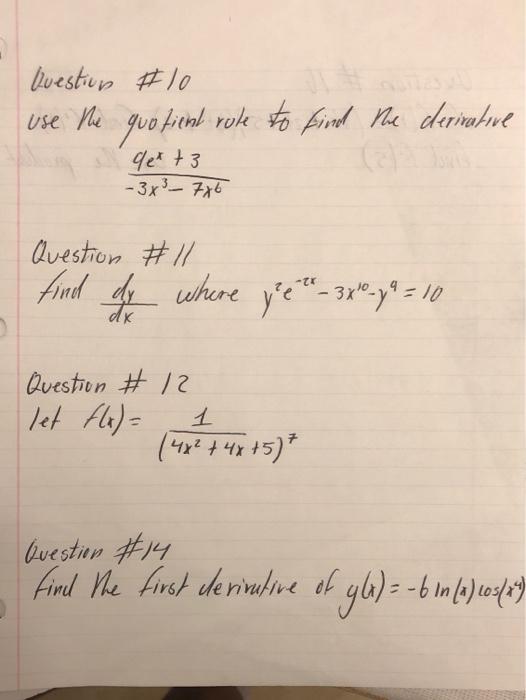 Question #10
use the quotient rule to find the derivative
9eˣ + 3
-3x³ - 7x⁶
Question #11
find dy/dx where y²e⁻²ˣ - 3x¹⁰ - y⁹ = 10
Question # 12
let f(x) = 1/(4x² + 4x + 5)⁷
Question #14
find the first derivative of y(x) = -6 ln(x) cos(x⁴)